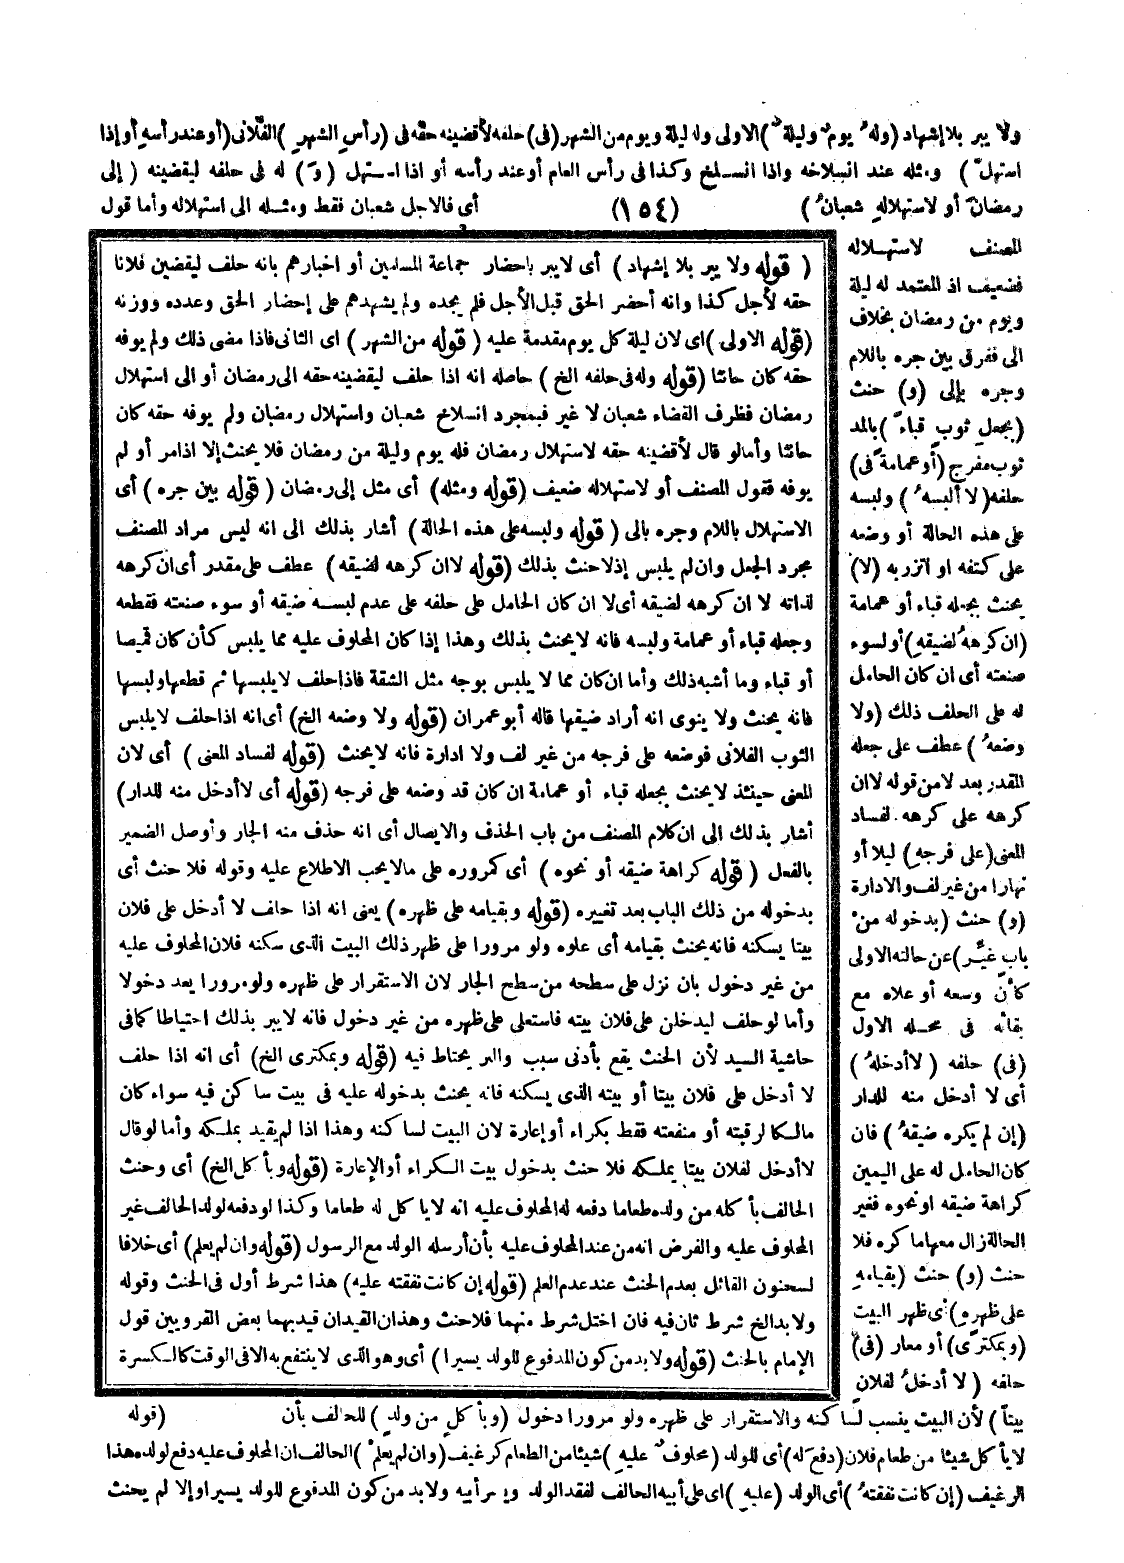 ولا يبر بلا إشهاد (وله يوم وليلة) الاولى وله ليلة ويوم من الشهر (فى) حلفه لأقضينه حقه فى (رأس الشهر) الفلانى (أو عند رأسه أو إذا
استهل) ومثله عند انسلاخه واذا انسلخ وكذا فى رأس العام أو عند رأسه أو اذا استهل (و) له فى حلفه ليقضينه (إلى
رمضان أو لاستهلاله شعبان) (١٥٤) أى فالاجل شعبان فقط ومثله الى استهلاله وأما قول
المصنف لاستهلاله
فضعيف اذ المعتمد له ليلة
ويوم من رمضان بخلاف
الى ففرق بين جره باللام
وجره بإلى (و) حنث
(بجعل ثوب قباء) بالمد
ثوب مفرج (أو عمامة فى)
حلفه (لا ألبسه) ولبسه
على هذه الحالة أو وضعه
على كتفه او اتزر به (لا)
يحنث بجعله قباء أو عمامة
(ان كرهه لضيقه) أو لسوء
صنعته أى ان كان الحامل
له على الحلف ذلك (ولا
وضعه) عطف على جعله
المقدر بعد لا من قوله لا ان
كرهه على كرهه لفساد
المعنى (على فرجه) ليلا أو
نهارا من غير لف والادارة
(و) حنث (بدخوله من
باب غير) عن حالته الاولى
كأن وسعه أو علاه مع
بقائه فى محله الاول
(فى) حلفه (لا أدخله)
أى لا أدخل منه للدار
(إن لم يكره ضيقه) فان
كان الحامل له على اليمين
كراهة ضيقه او نحوه فغير
الحالة زال معها ما كره فلا
حنث (و) حنث (بقيامه
على ظهره) أى ظهر البيت
(وبمكترى) أو معار (فى)
حلفه (لا أدخل لفلان
(قوله ولا يبر بلا إشهاد) أى لا يبر باحضار جماعة المسلمين أو اخبارهم بانه حلف ليقضين فلانا
حقه لأجل كذا وانه أحضر الحق قبل الأجل فلم يجده ولم يشهدهم على إحضار الحق وعدده ووزنه
(قوله الاولى) اى لان ليلة كل يوم مقدمة عليه (قوله من الشهر) اى الثانى فاذا مضى ذلك ولم يوفه
حقه كان حانثا (قوله وله فى حلفه الخ) حاصله انه اذا حلف ليقضينه حقه الى رمضان أو الى استهلال
رمضان فظرف القضاء شعبان لا غير فبمجرد انسلاخ شعبان واستهلال رمضان ولم يوفه حقه كان
حانثا وأما لو قال لأقضينه حقه لاستهلال رمضان فله يوم وليلة من رمضان فلا يحنث إلا اذا مر أو لم
يوفه فقول المصنف أو لاستهلاله ضعيف (قوله ومثله) أى مثل إلى رمضان (قوله بين جره) أى
الاستهلال باللام وجره بالى (قوله ولبسه على هذه الحالة) أشار بذلك الى انه ليس مراد المصنف
مجرد الجعل وان لم يلبس إذ لا حنث بذلك (قوله لا ان كرهه لضيقه) عطف على مقدر أى ان كرهه
لذاته لا ان كرهه لضيقه أى لا ان كان الحامل على حلفه على عدم لبسه ضيقه أو سوء صنعته فقطعه
وجعله قباء أو عمامة ولبسه فانه لا يحنث بذلك وهذا إذا كان المحلوف عليه مما يلبس كأن كان قميصا
أو قباء وما أشبه ذلك وأما ان كان مما لا يلبس بوجه مثل الشقة فاذا حلف لا يلبسها ثم قطعها ولبسها
فانه يحنث ولا ينوى انه أراد ضيقها قاله أبو عمران (قوله ولا وضعه الخ) أى انه اذا حلف لا يلبس
الثوب الفلانى فوضعه على فرجه من غير لف ولا ادارة فانه لا يحنث (قوله لفساد المعنى) أى لان
المعنى حينئذ لا يحنث بجعله قباء أو عمامة ان كان قد وضعه على فرجه (قوله أى لا أدخل منه للدار)
أشار بذلك الى ان كلام المصنف من باب الحذف والايصال أى انه حذف منه الجار وأوصل الضمير
بالفعل (قوله كراهة ضيقه أو نحوه) أى كمروره على مالا يحب الاطلاع عليه وقوله فلا حنث أى
بدخوله من ذلك الباب بعد تغييره (قوله وبقيامه على ظهره) يعنى انه اذا حلف لا أدخل على فلان
بيتا يسكنه فانه يحنث بقيامه أى علوه ولو مرورا على ظهر ذلك البيت الذى سكنه فلان المحلوف عليه
من غير دخول بان نزل على سطحه من سطح الجار لان الاستقرار على ظهره ولو مرورا يعد دخولا
وأما لو حلف ليدخلن على فلان بيته فاستعلى على ظهره من غير دخول فانه لا يبر بذلك احتياطا كما فى
حاشية السيد لأن الحنث يقع بأدنى سبب والبر يحتاط فيه (قوله وبمكترى الخ) أى انه اذا حلف
لا أدخل على فلان بيتا أو بيته الذى يسكنه فانه يحنث بدخوله عليه فى بيت ساكن فيه سواء كان
مالكا لرقبته أو منفعته فقط بكراء أو إعارة لان البيت لساكنه وهذا اذا لم يقيد بملكه وأما لو قال
لا أدخل لفلان بيتا يملكه فلا حنث بدخول بيت الكراء أو الإعارة (قوله وبأكل الخ) أى وحنث
الحالف بأكله من ولده طعاما دفعه له المحلوف عليه انه لا يأكل له طعاما وكذا لو دفعه لولد الحالف غير
المحلوف عليه والفرض انه من عند المحلوف عليه بأن أرسله الولد مع الرسول (قوله وان لم يعلم) أى خلافا
لسحنون القائل بعدم الحنث عند عدم العلم (قوله إن كانت نفقته عليه) هذا شرط أول فى الحنث وقوله
ولا بد الخ شرط ثان فيه فان اختل شرط منهما فلا حنث وهذان القيدان قيد بهما بعض القرويين قول
الإمام بالحنث (قوله ولا بد من كون المدفوع للولد يسيرا) أى وهو الذى لا ينتفع به الا فى الوقت كالكسرة
بيتا) لأن البيت ينسب لساكنه والاستقرار على ظهره ولو مرورا دخول (وبأكل من ولد) للحالف بأن (قوله
لا يأكل شيئا من طعام فلان (دفع له) أى للولد (محلوف عليه) شيئا من الطعام كرغيف (وان لم يعلم) الحالف ان المحلوف عليه دفع لولده هذا
الرغيف (إن كانت نفقته) أى الولد (عليه) اى على أبيه الحالف لفقد الولد ويسر أبيه ولا بد من كون المدفوع للولد يسيرا وإلا لم يحنث